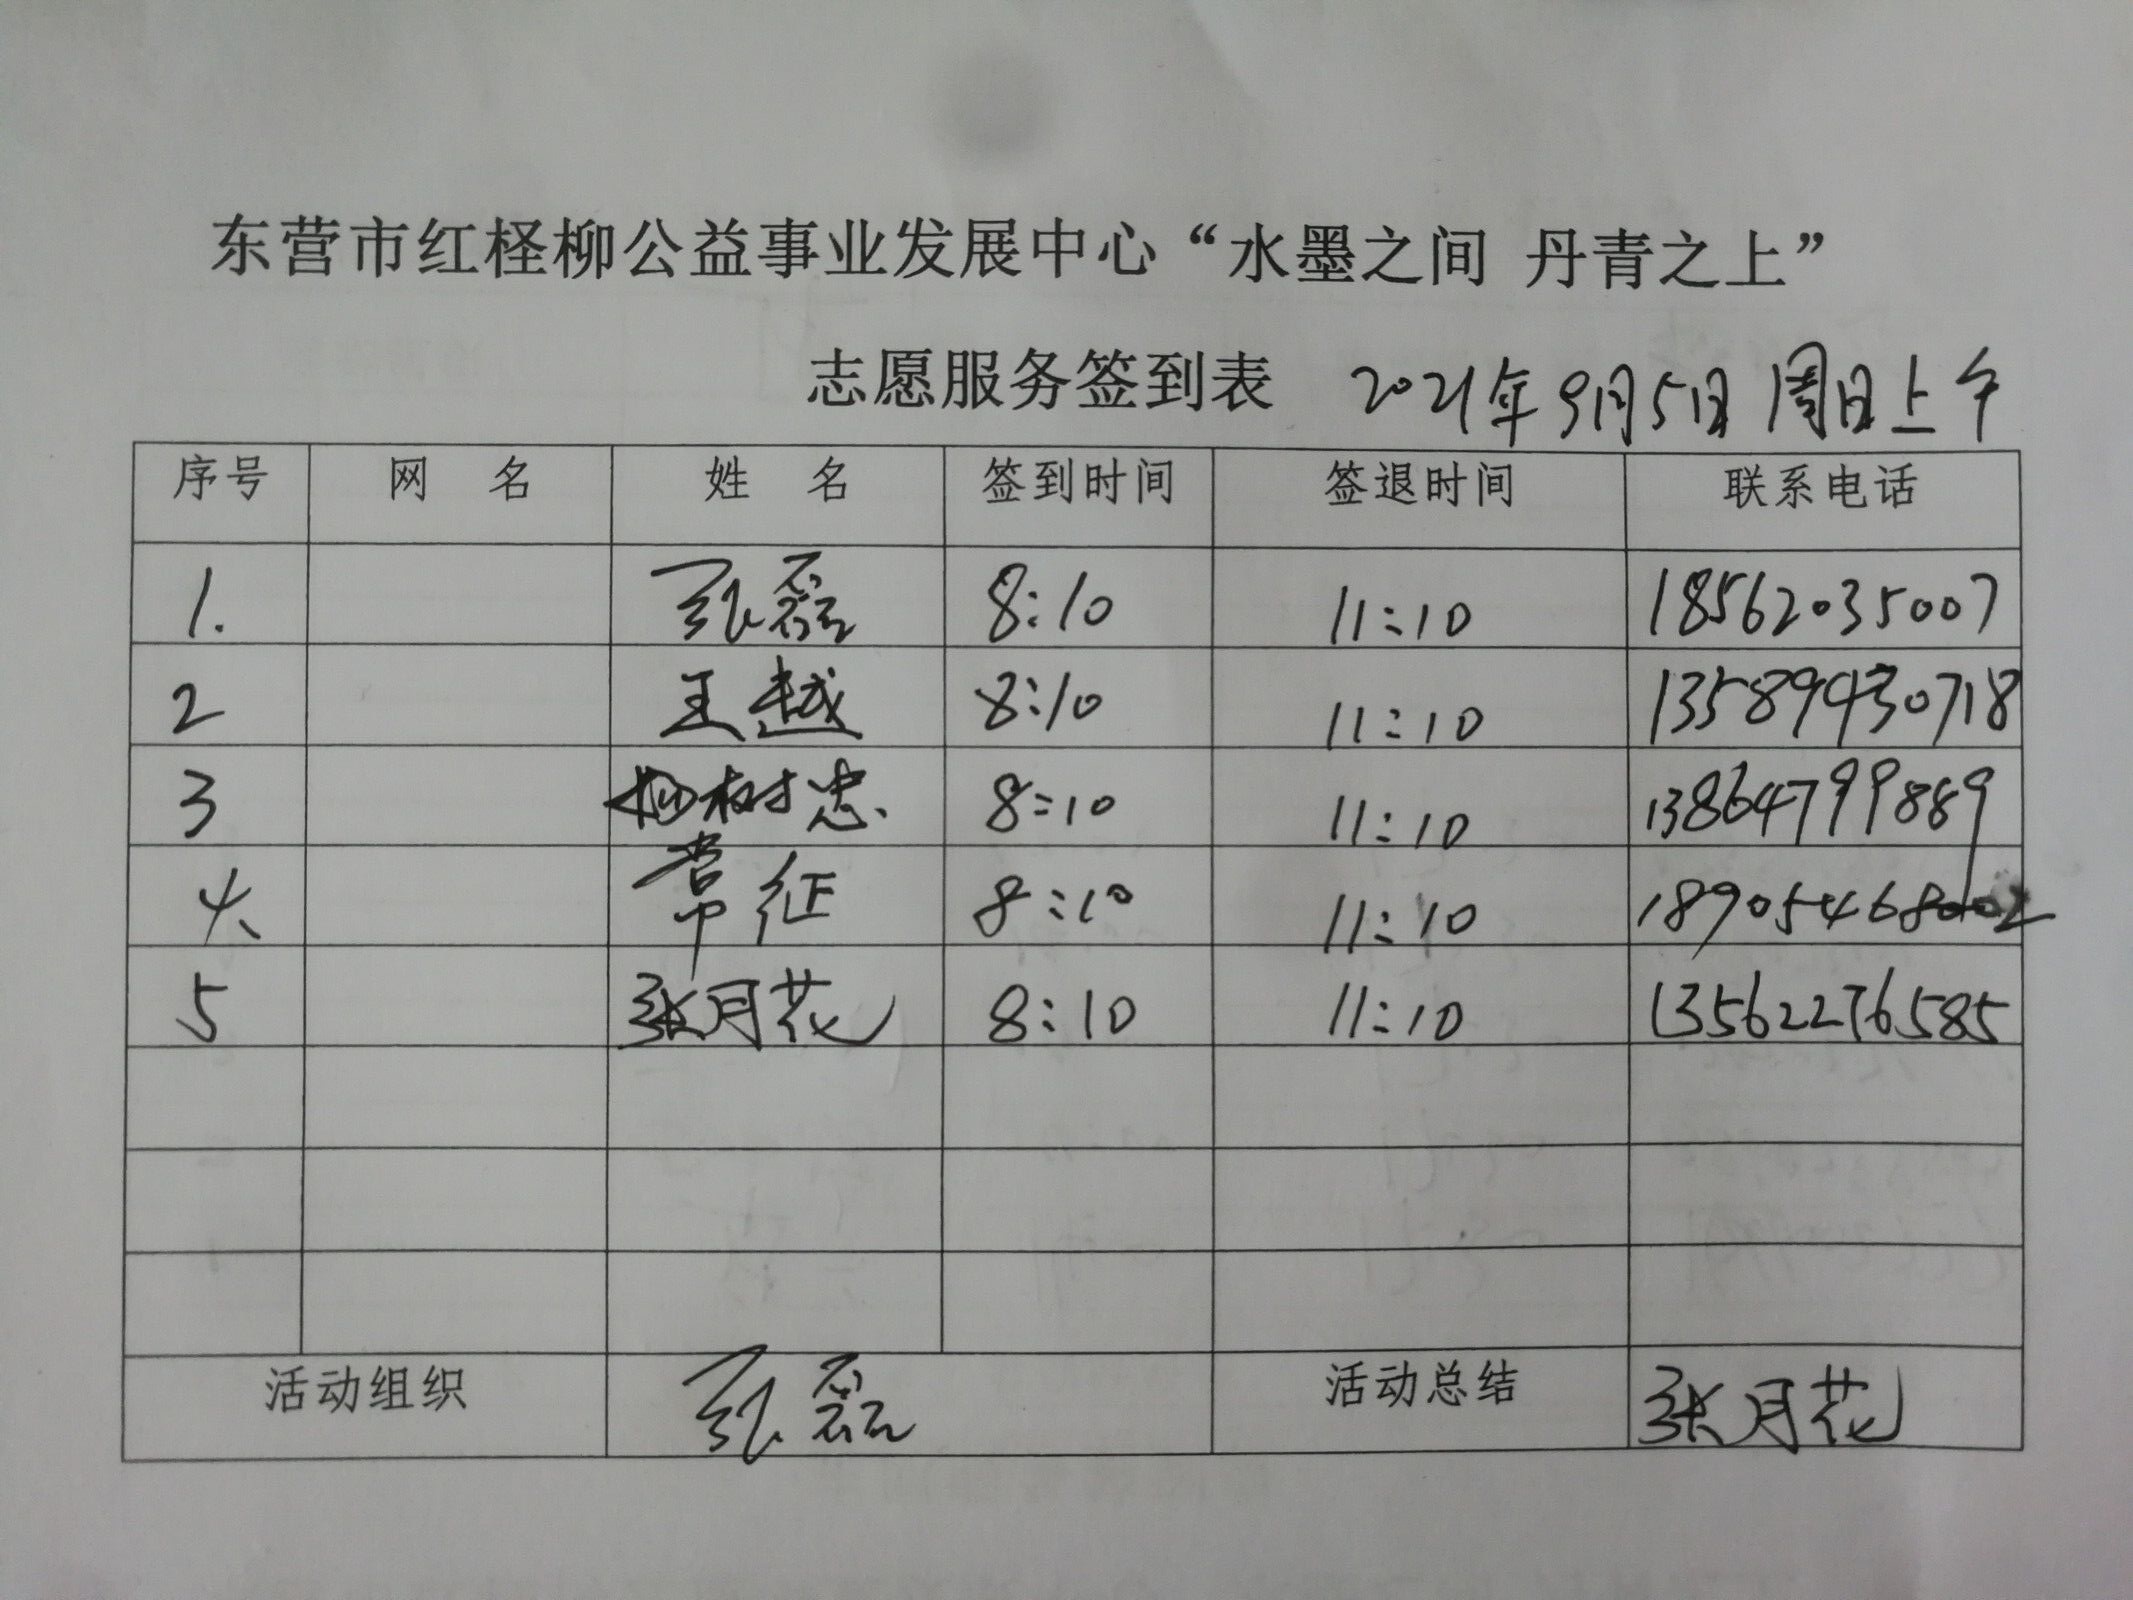 东营市红柽柳公益事业发展中心“水墨之间 丹青之上”
志愿服务签到表 2021年9月5日 周日上午
序号 网 名 姓 名 签到时间 签退时间 联系电话
1. 张磊 8:10 11:10 18562035007
2 王越 8:10 11:10 13589430718
3 杨树忠 8:10 11:10 13864799889
4、 常征 8:10 11:10 18905468002
5 张月花 8:10 11:10 13562276585
活动组织 张磊 活动总结 张月花